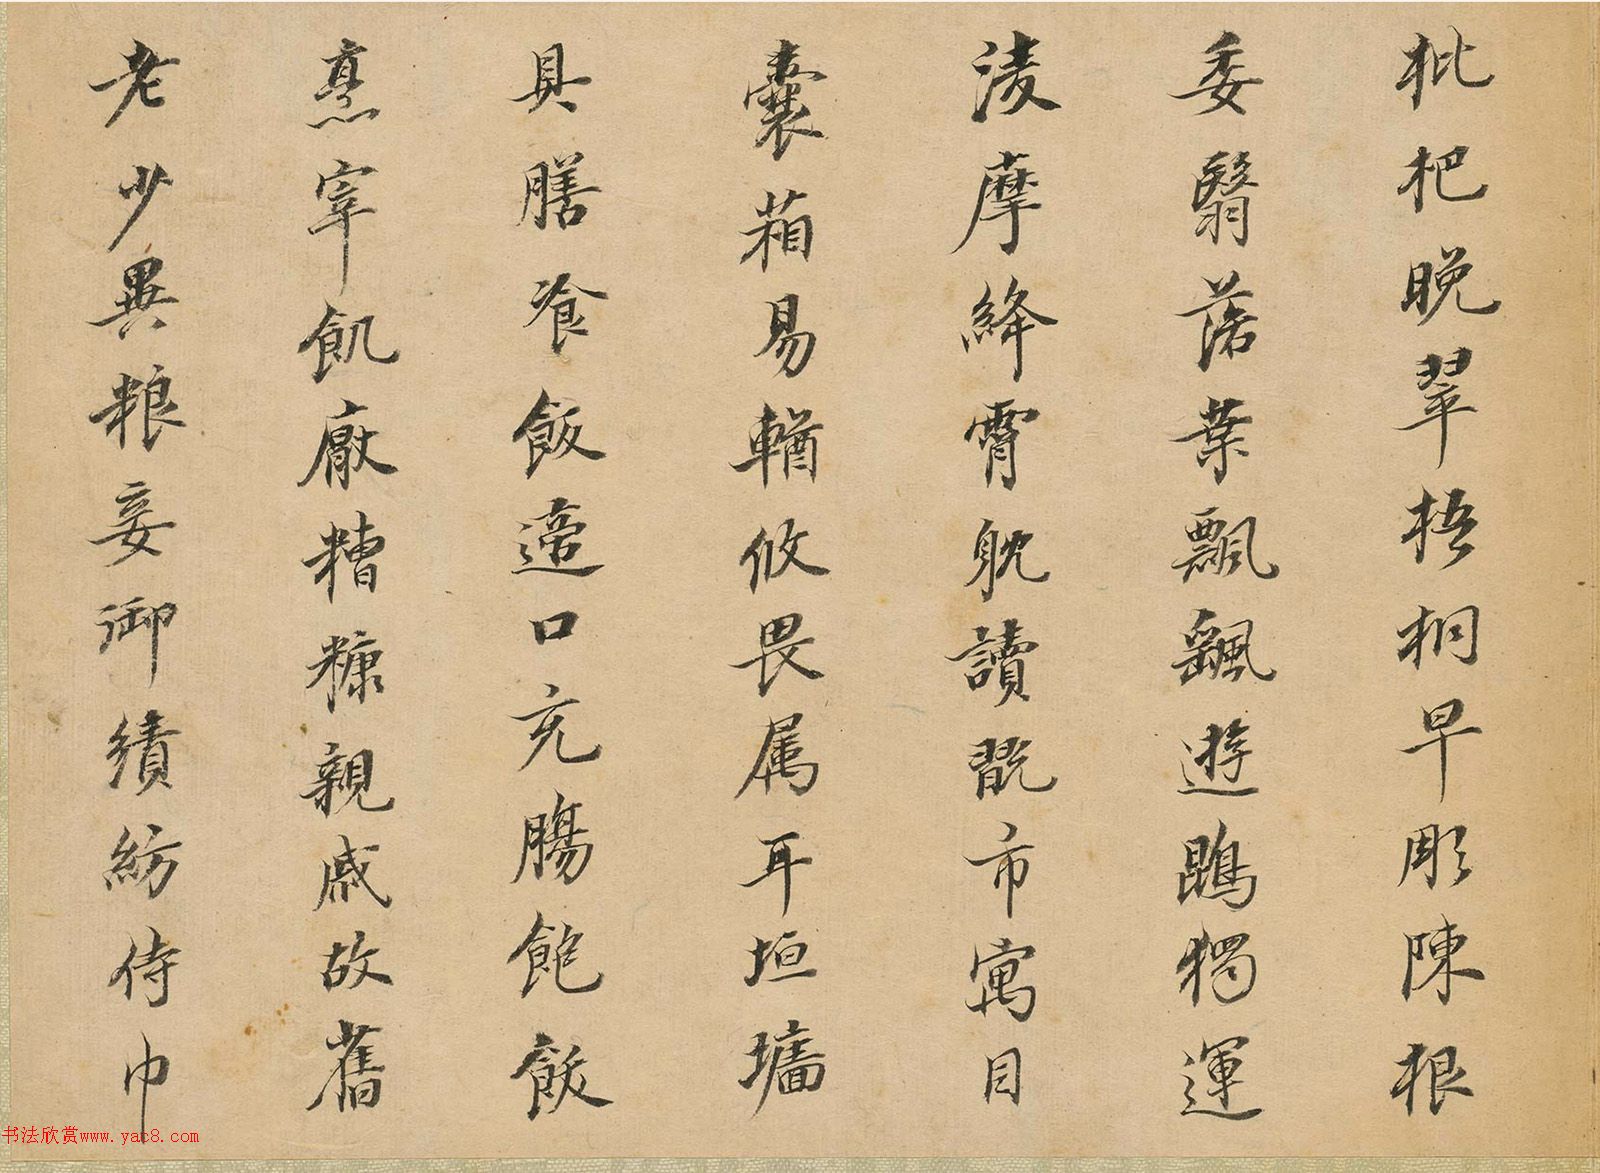 枇杷晚翠梧桐早彫陳根
委翳落葉飄飖遊鵾獨運
淩摩絳霄躭讀翫市寓目
囊葙易輶攸畏属耳垣墻
具膳飡飯適口充腸飽飫
烹宰飢厭糟糠親戚故舊
老少異粮妾御績紡侍巾
书法欣赏www.yac8.com